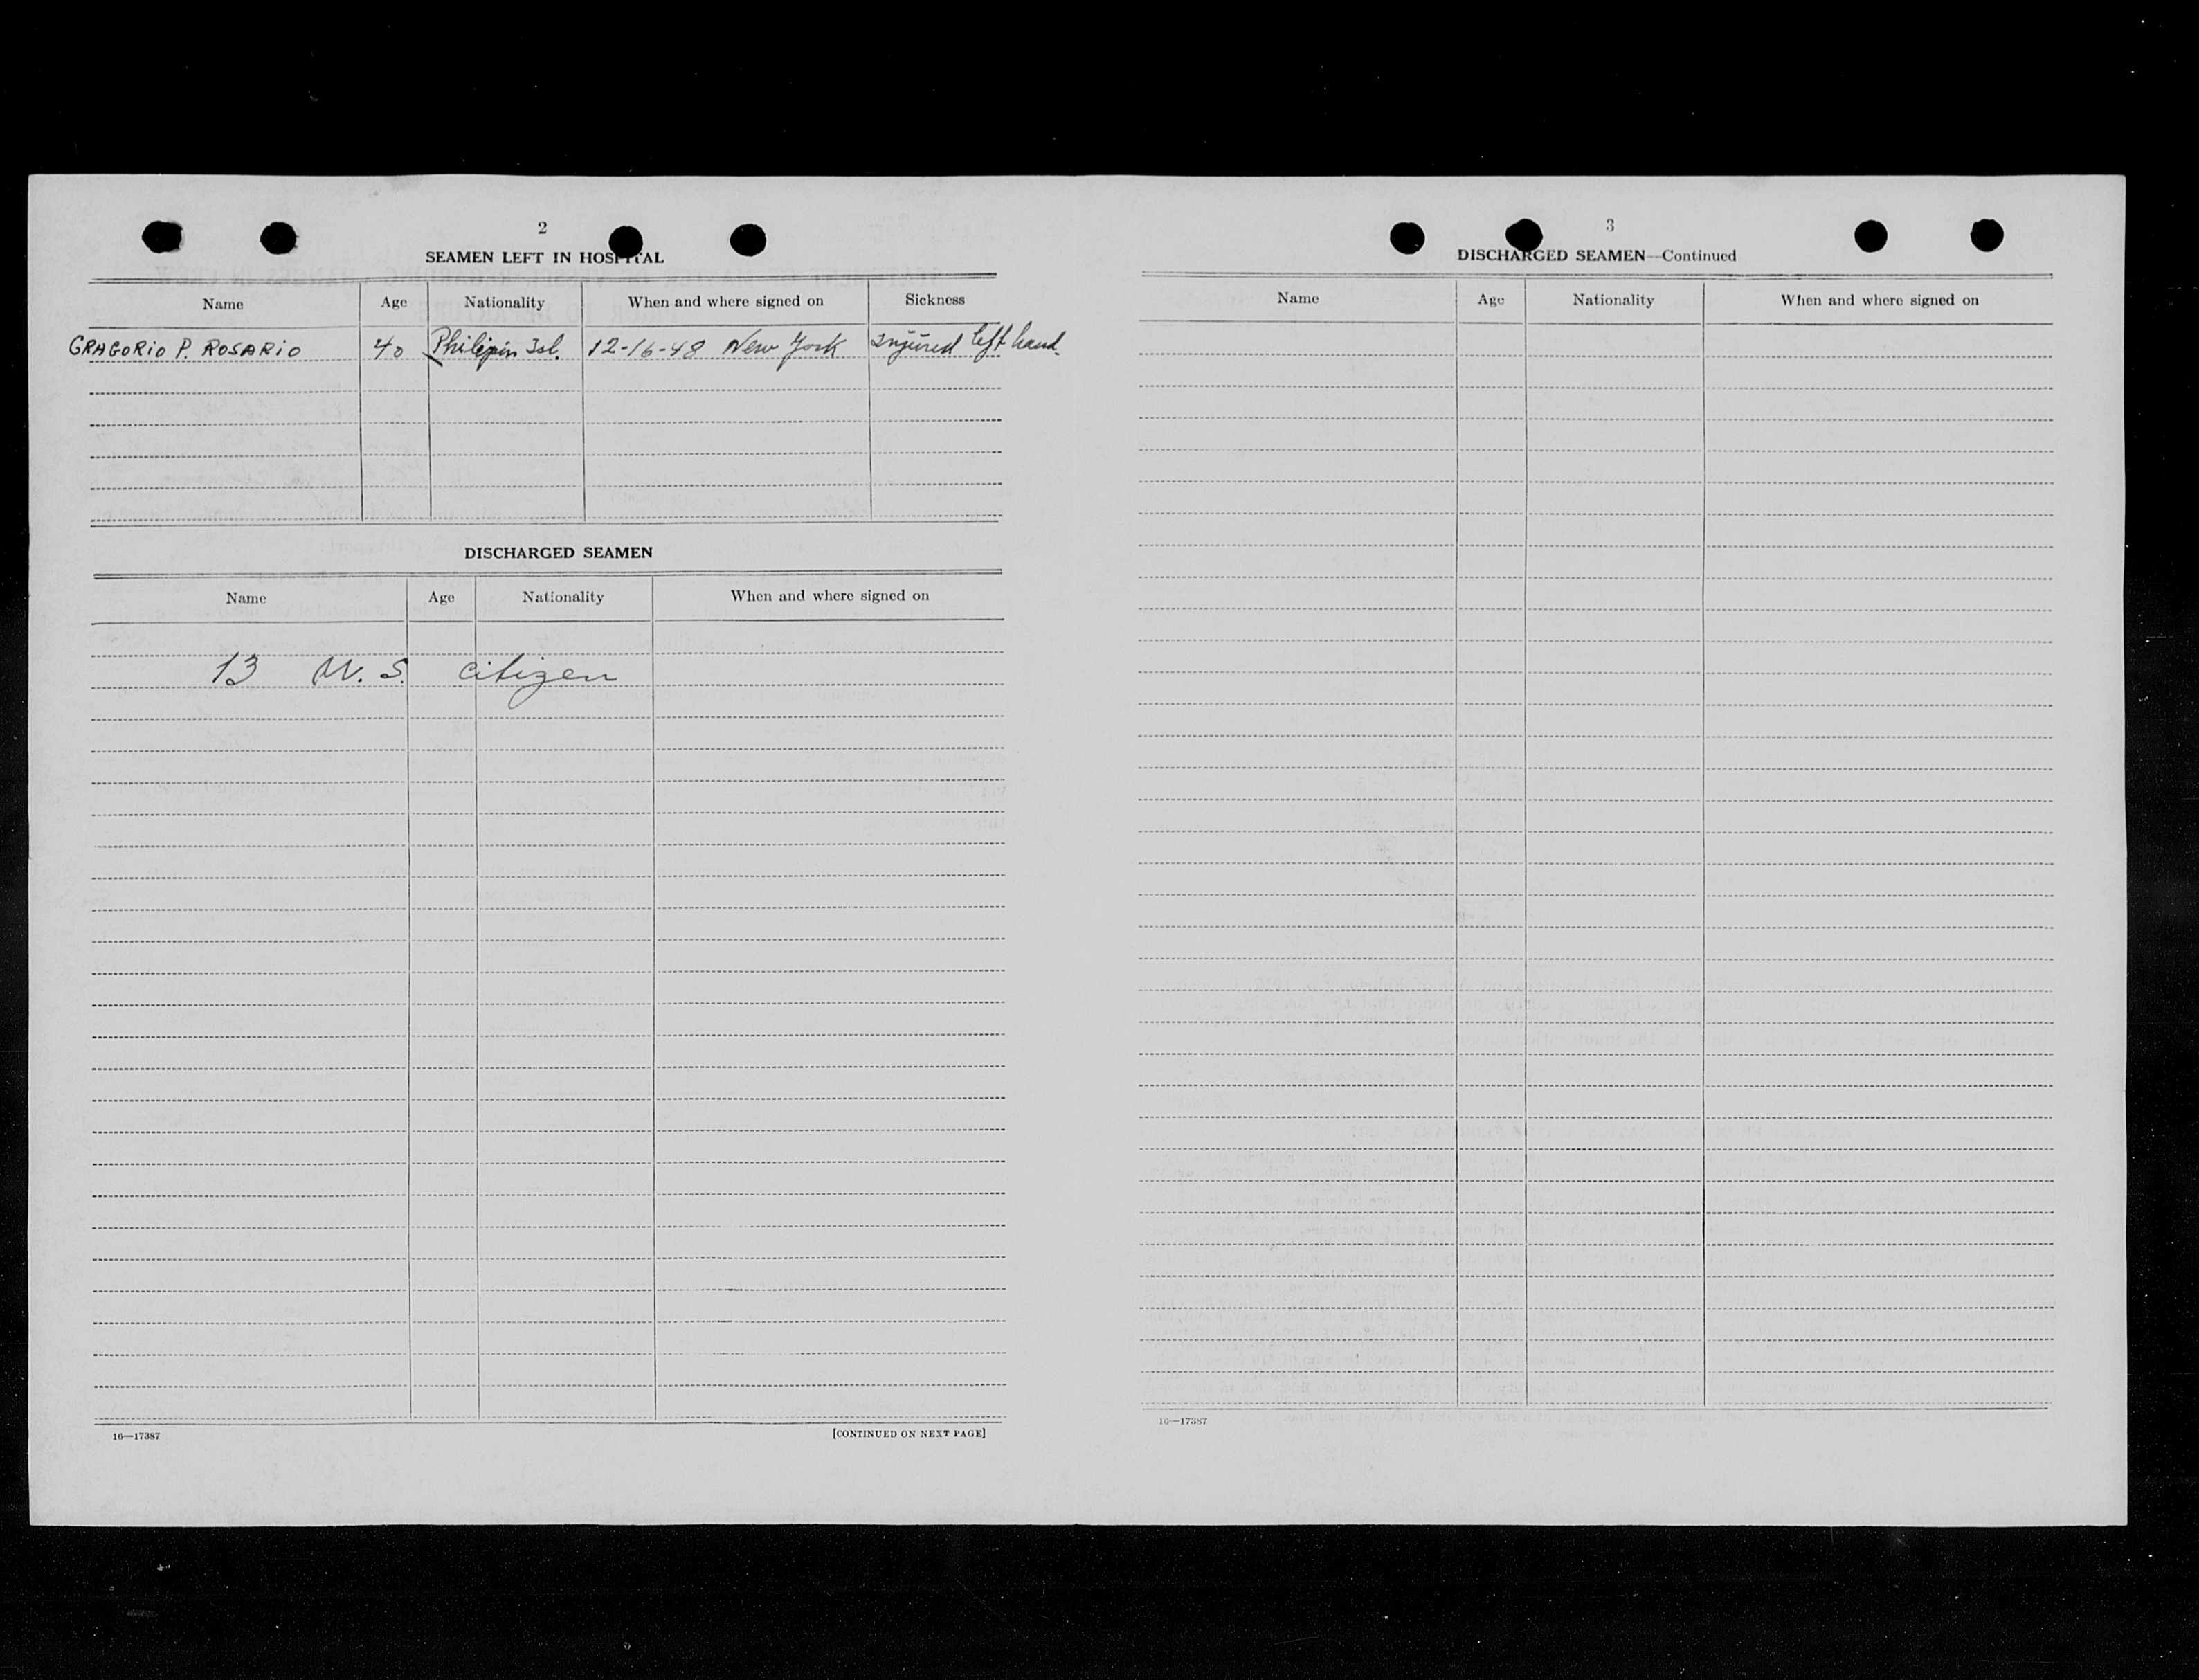 2
SEAMEN LEFT IN HOSPITAL
Name Age Nationality When and where signed on Sickness
GRAGORIO P. ROSARIO 40 Philipin Isl. 12-16-48 New York Injured left hand.
DISCHARGED SEAMEN
Name Age Nationality When and where signed on
13 U.S. citizen
16—17387 [CONTINUED ON NEXT PAGE]
3
DISCHARGED SEAMEN—Continued
Name Age Nationality When and where signed on
16—17387